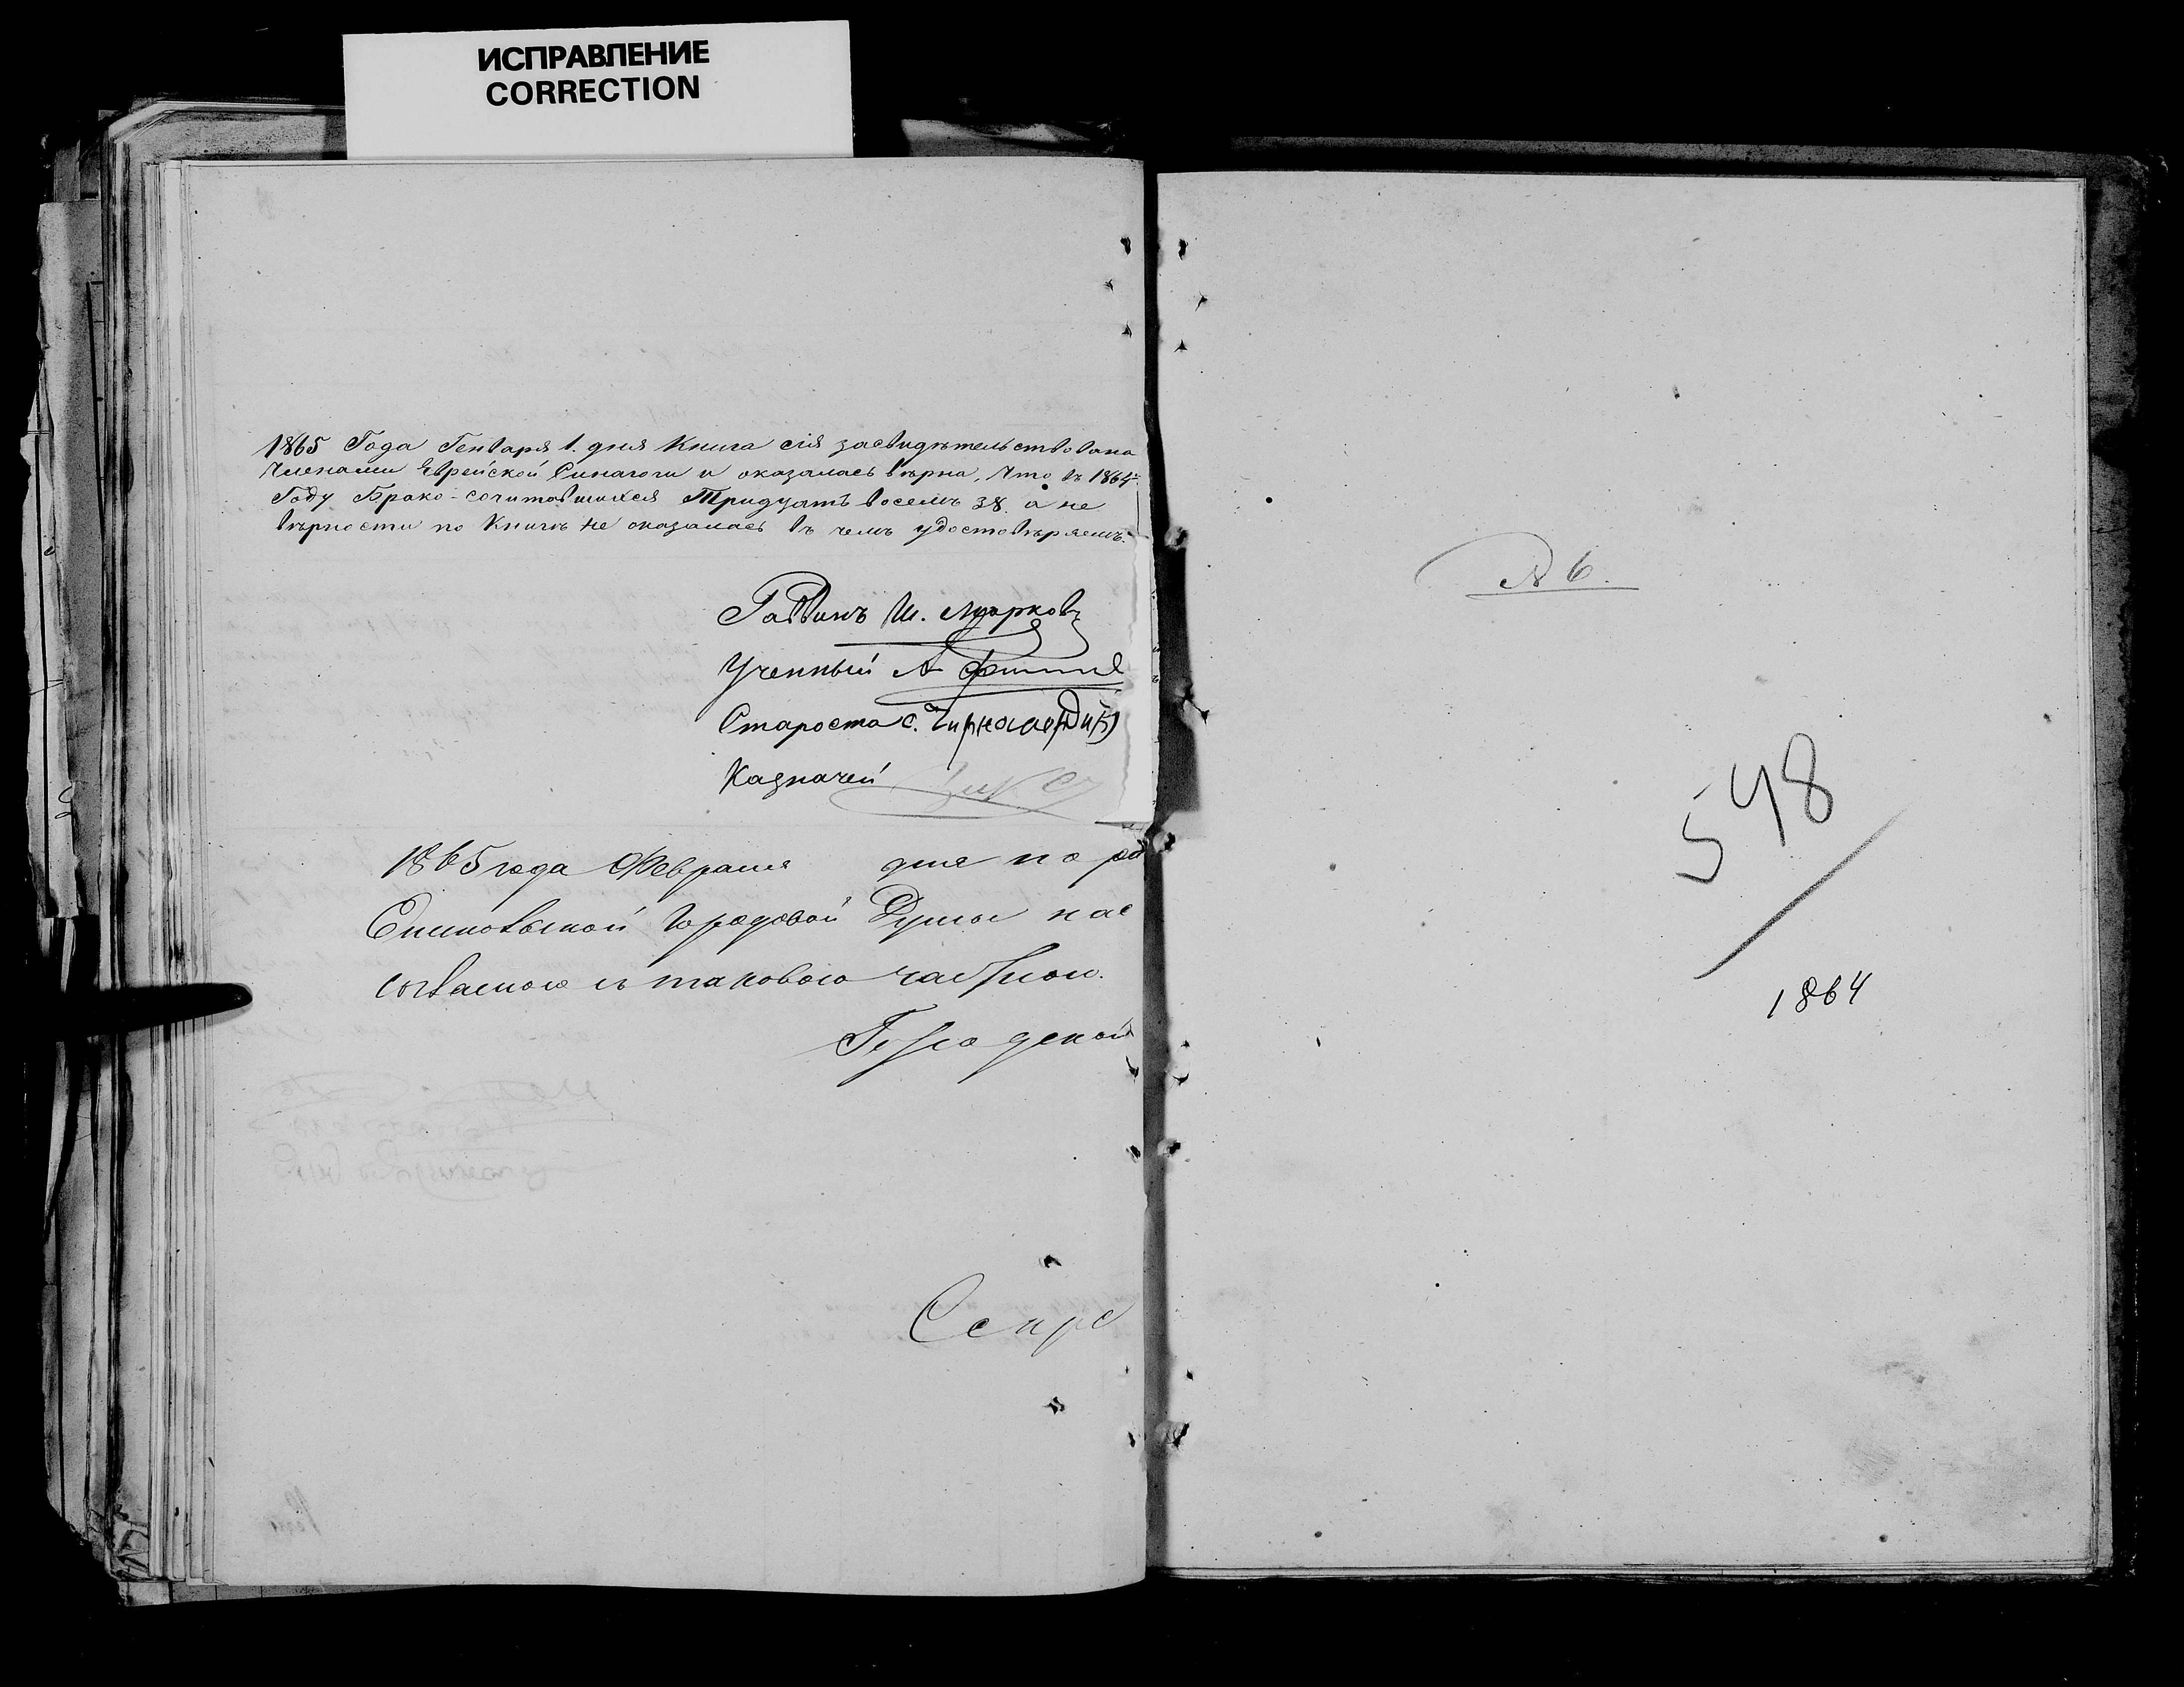 ИСПРАВЛЕНИЕ
CORRECTION
1865 Года Генваря 1. дня Книга сія засвидѣтельствована
Членами Еврейской Синагоги и оказалась вѣрна, что въ 1864
Году Брако-сочитавшихся Тридцать восемь 38. а не
вѣрности по Книгѣ не оказалась въ чемъ удостовѣряемъ.
Раввинъ Ш. Марковъ
Ученный А
Староста С.
Казначей
1865 года Февраля дня по
Городовой Думы нас
съ таковою
Городской
Секре
№ 6.
548
1864